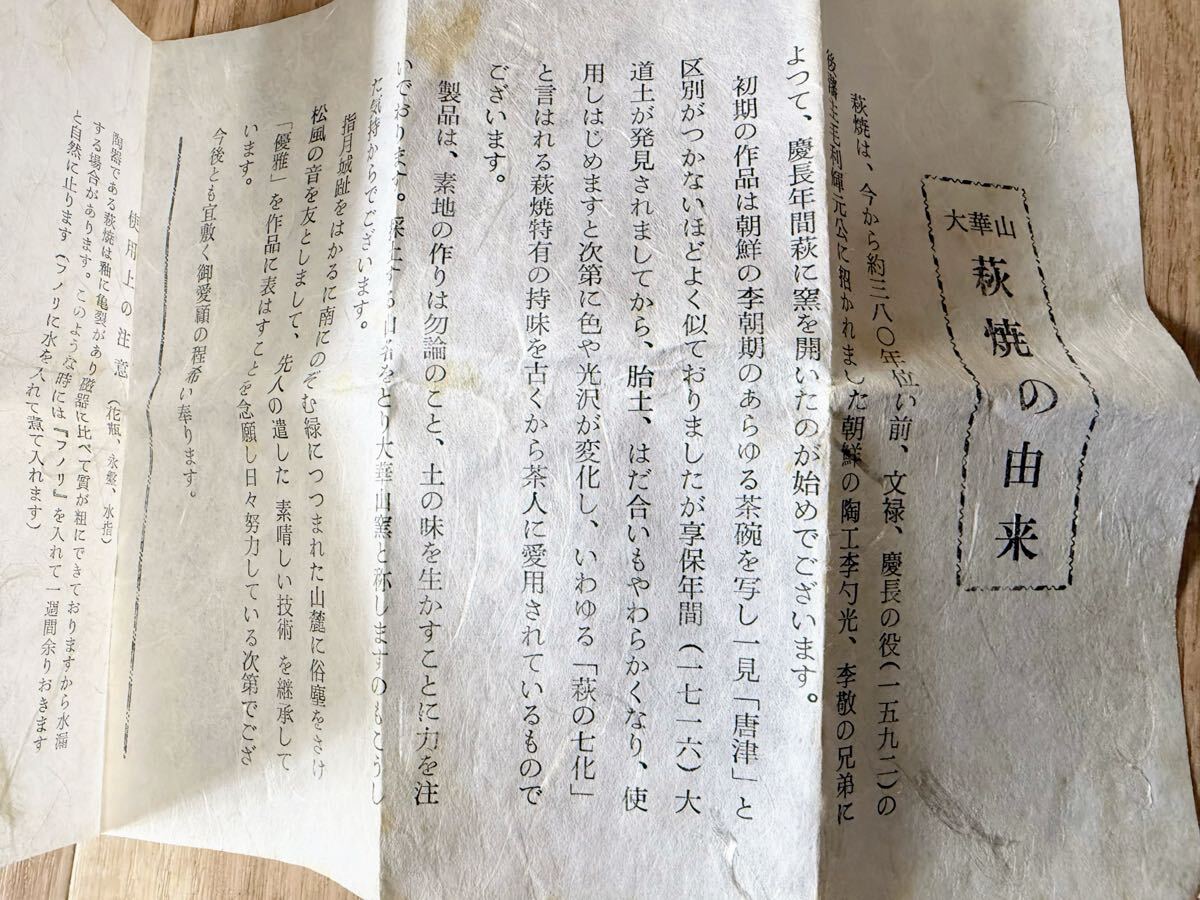 大華山
萩焼の由来
萩焼は、今から約三八〇年位い前、文禄、慶長の役(一五九二)の
後藩主毛利輝元公に招かれました朝鮮の陶工李勺光、李敬の兄弟に
よつて、慶長年間萩に窯を開いたのが始めでございます。
初期の作品は朝鮮の李朝期のあらゆる茶碗を写し一見「唐津」と
区別がつかないほどよく似ておりましたが享保年間(一七一六)大
道土が発見されましてから、胎土、はだ合いもやわらかくなり、使
用しはじめますと次第に色や光沢が変化し、いわゆる「萩の七化」
と言はれる萩焼特有の持味を古くから茶人に愛用されているもので
ございます。
製品は、素地の作りは勿論のこと、土の味を生かすことに力を注
いでおります。採土する山名をとり大華山窯と称しますのもこうし
た気持からでございます。
指月城趾をはかるに南にのぞむ緑につつまれた山麓に俗塵をさけ
松風の音を友としまして、先人の遺した素晴しい技術を継承して
「優雅」を作品に表はすことを念願し日々努力している次第でござ
います。
今後とも宜敷く御愛顧の程希い奉ります。
使用上の注意(花瓶、水盤、水指)
陶器である萩焼は釉に亀裂があり磁器に比べて質が粗にできておりますから水漏
する場合があります。このような時には『フノリ』を入れて一週間余りおきます
と自然に止ります(フノリに水を入れて煮て入れます)